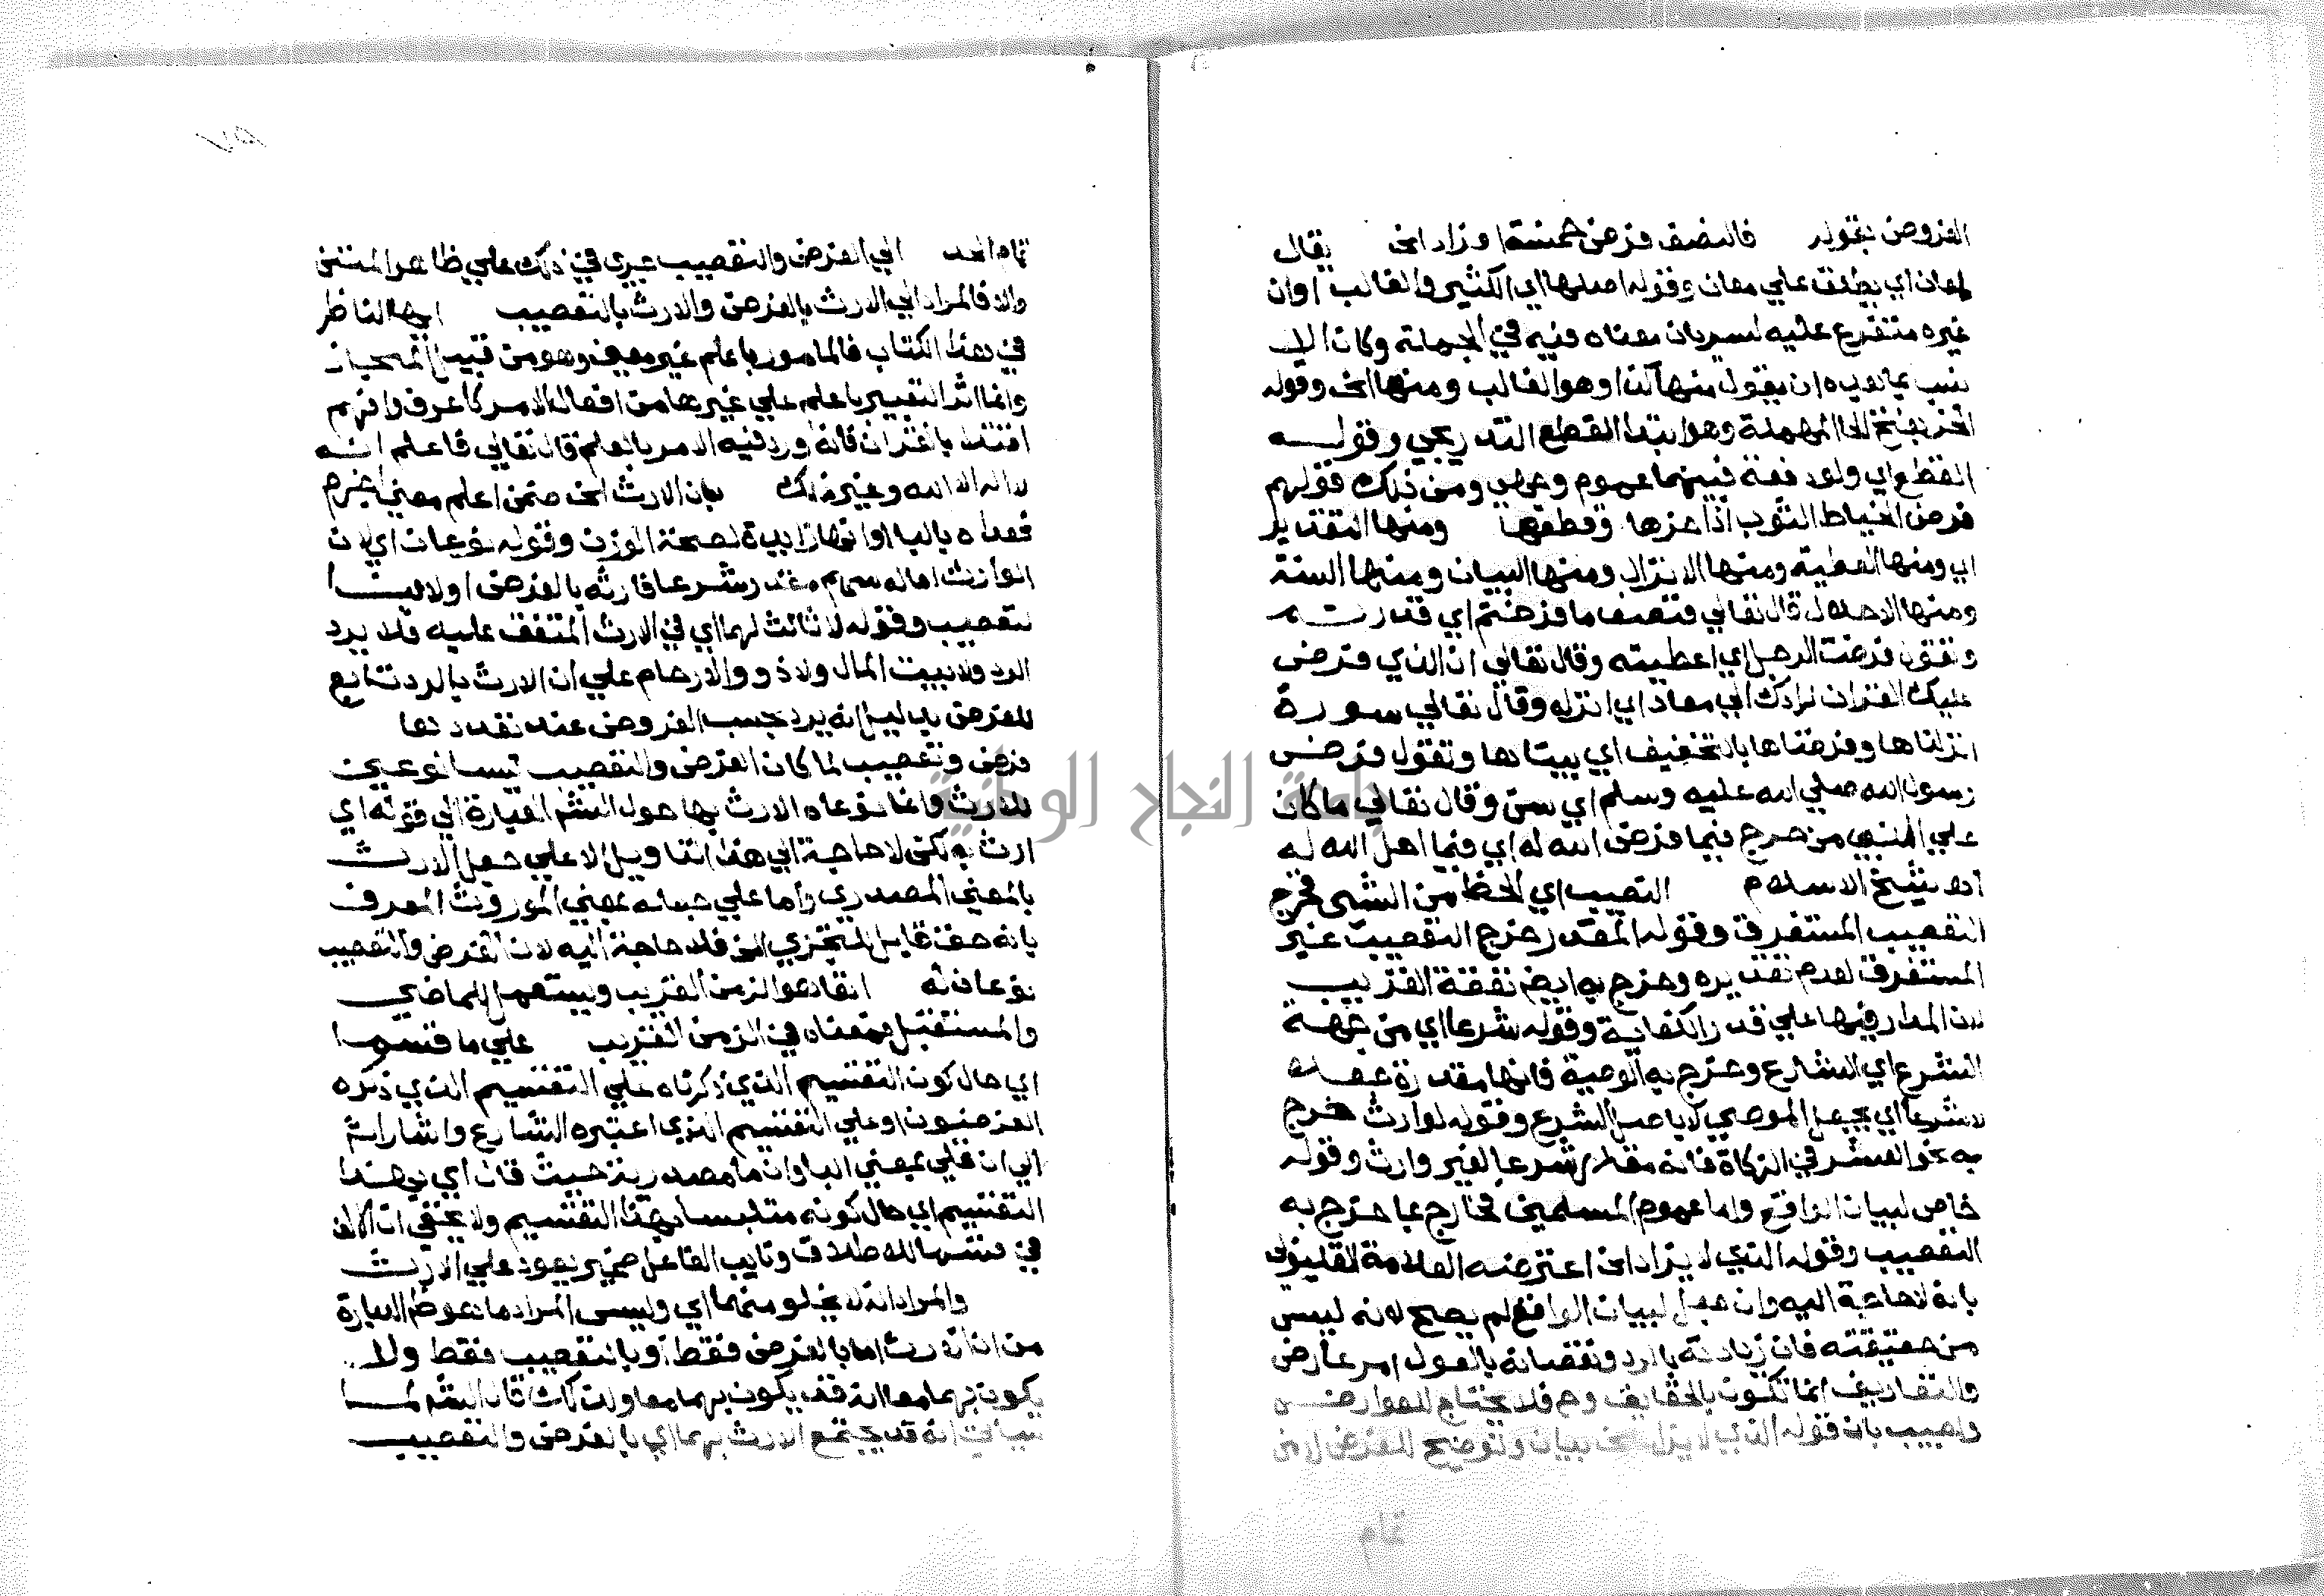 الفروض بقوله فالنصف فرض خمسة او زاد الخ يقال
لمعان اي يطلق علي معان وقوله اصلها اي الكثير والغالب اوان
غيره متفرع عليه لسريان معناه فيه في الجملة وكان الا
نسب بما بعده ان يقول منها كذا وهو الغالب ومنها الخ وقوله
الحز بفتح الحا المهملة وهو ابتدا القطع التدريجي وقوله
القطع اي ولو دفعة فبينهما عموم وخصوص ومن ذلك قولهم
فرض الخياط الثوب اذا حزها وقطعها ومنها التقدير
اي ومنها العطية ومنها الانزال ومنها البيان ومنها السنة
ومنها الاحلال قال تعالي فنصف ما فرضتم اي قدرتم
وتقول فرضت الرجل اي اعطيته وقال تعالي ان الذي فرض
عليك القران لرادك الي معاد اي انزله وقال تعالي سورة
انزلناها وفرضناها بالتخفيف اي بيناها وتقول فرض
رسول الله صلي الله عليه وسلم اي سن وقال تعالي ما كان
علي النبي من حرج فيما فرض الله له اي فيما احل الله له
اهـ شيخ الاسلام النصيب اي الحظ من الشي فخرج
التعصيب المستغرق وقوله المقدر خرج التعصيب غير
المستغرق لعدم تقديره وخرج به ايض نفقة القريب
لان المدار فيها علي قدر الكفاية وقوله شرعا اي من جهة
الشرع اي الشارع وخرج به الوصية فانها مقدرة جعلا
لا شرعا اي بجعل الموصي لا باصل الشرع وقوله لوارث خرج
به نحو العشر في الزكاة فانه مقدر شرعا لغير وارث وقوله
خاص لبيان الواقع واما عموم المسلمين فخارج بما خرج به
التعصيب وقوله الذي لا يزاد الخ اعترضه العلامة القليوبي
بانه لا حاجة اليه وان جعل لبيان الواقع لم يصح لانه ليس
من حقيقته فان زيادته بالرد ونقصانه بالعول امر عارض
والتعاريف انما تكون بالحقايق وح فلا يحتاج للعوارض
واجيب بان قوله الذي لا يزاد الخ بيان وتوضيح للفرض
تمام
تمام الحد الي الفرض والتعصيب جري في ذلك علي ظاهر المتن
والا فالمراد الي الارث بالفرض والارث بالتعصيب ايها الناظر
في هذا الكتاب فالمامور باعلم غير معين وهو من قبيل
وانما اثر التعبير باعلم علي غيرها من افعال الامر كاعرف وافهم
اقتدا بالقران فانه ورد فيه الامر بالعلم قال تعالي فاعلم انه
لا اله الا الله وغير ذلك بان الارث الخ ضمن اعلم معني اجزم
فعداه بالبا او انها زايدة لصحة الوزن وقوله نوعان اي لان
الوارث اما له سهم مقدر شرعا فارثه بالفرض اولا
لتعصيب وقوله لا ثالث لهما اي في الارث المتفق عليه فلا يرد
الرد ولا بيت المال ولا ذوو الارحام علي ان الارث بالرد تابع
للفرض بدليل انه يرد بحسب الفروض عند تعددها
فرض وتعصيب لما كان الفرض والتعصيب ليسا نوعين
للارث وانما نوعاه الارث بهما حول الشم العبارة الي قوله اي
ارث به لكن لا حاجة الي هذا التاويل الا علي جعل الارث
بالمعني المصدري واما علي جعله بمعني الموروث المعرف
بانه حق قابل للتجزي الخ فلا حاجة اليه لان الفرض والتعصيب
نوعان له انفا هو الزمن القريب ويستعمل للماضي
والمستقبل فمعناه في الزمن القريب علي ما قسموا
اي حال كون التقسيم الذي ذكرناه علي التقسيم الذي ذكره
الفرضيون او علي التقسيم الذي اعتبره الشارع واشار الشم
الي ان علي بمعني البا وان ما مصدرية حيث قال اي بهذا
التقسيم اي حال كونه متلبسا بهذا التقسيم ولا يخفي ان الالف
في قسما للاطلاق ونايب الفاعل ضمير يعود علي الارث
والمراد انه لا يخلو منهما اي وليس المراد ما
من ان الارث اما بالفرض فقط او بالتعصيب فقط ولا
يكون بهما معا انه قد يكون بهما معا ولذلك قال الشم لما
سياتي انه قد يجتمع الارث بهما اي بالفرض والتعصيب
جامعة النجاح الوطنية